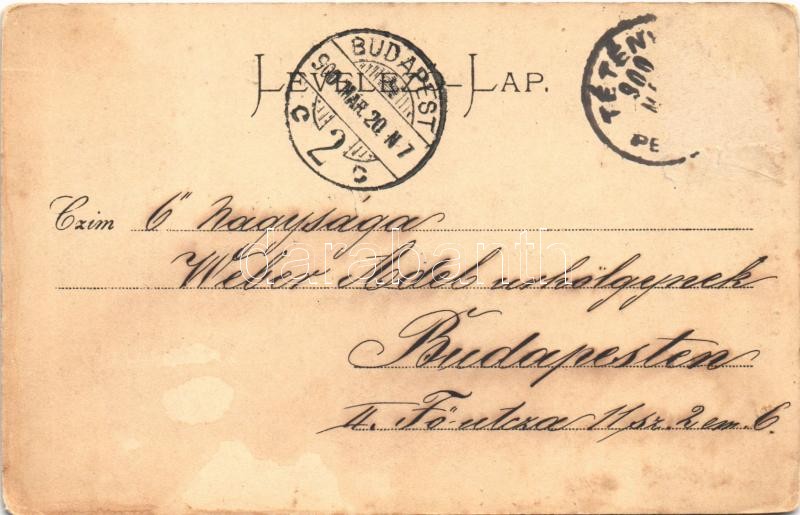 LEVELEZŐ-LAP.
BUDAPEST
900 MÁR. 20. N7
2
TÉTÉN
900
PE
Czim Ő Nagysága
Weber Adél urhölgynek
Budapesten
II. Fő-utcza 11/sz. 2 em. 6.
darabanth